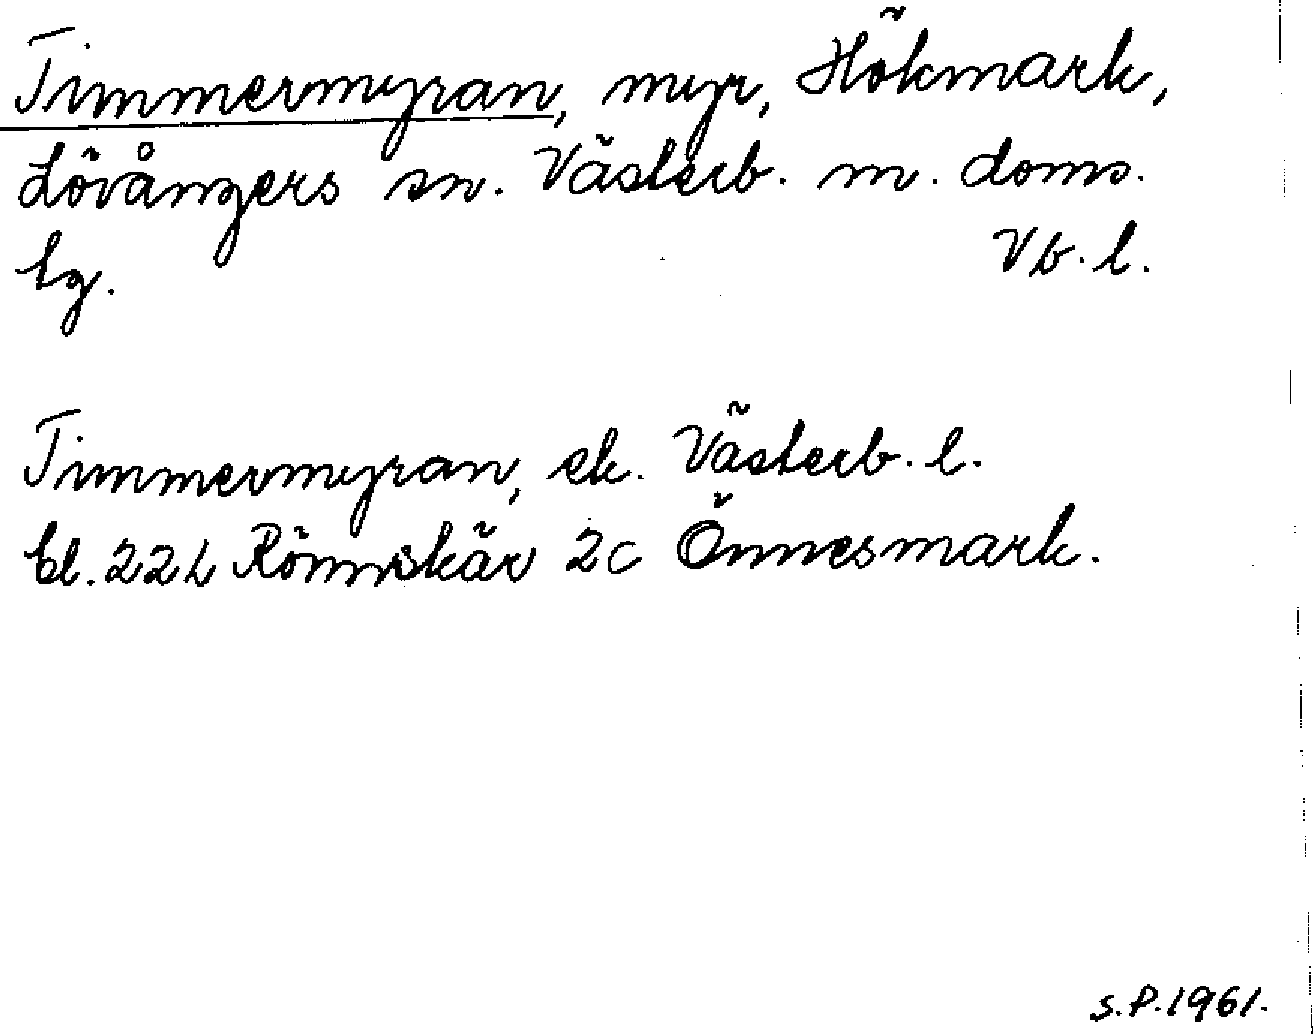 Timmermyran, myr, Hökmark,
Lövångers sn. Västerb. m. doms.
lg. Vb. l.
Timmermyran, ek. Västerb. l.
bl. 22L Rönnskär 2c Önnesmark.
S.P. 1961.